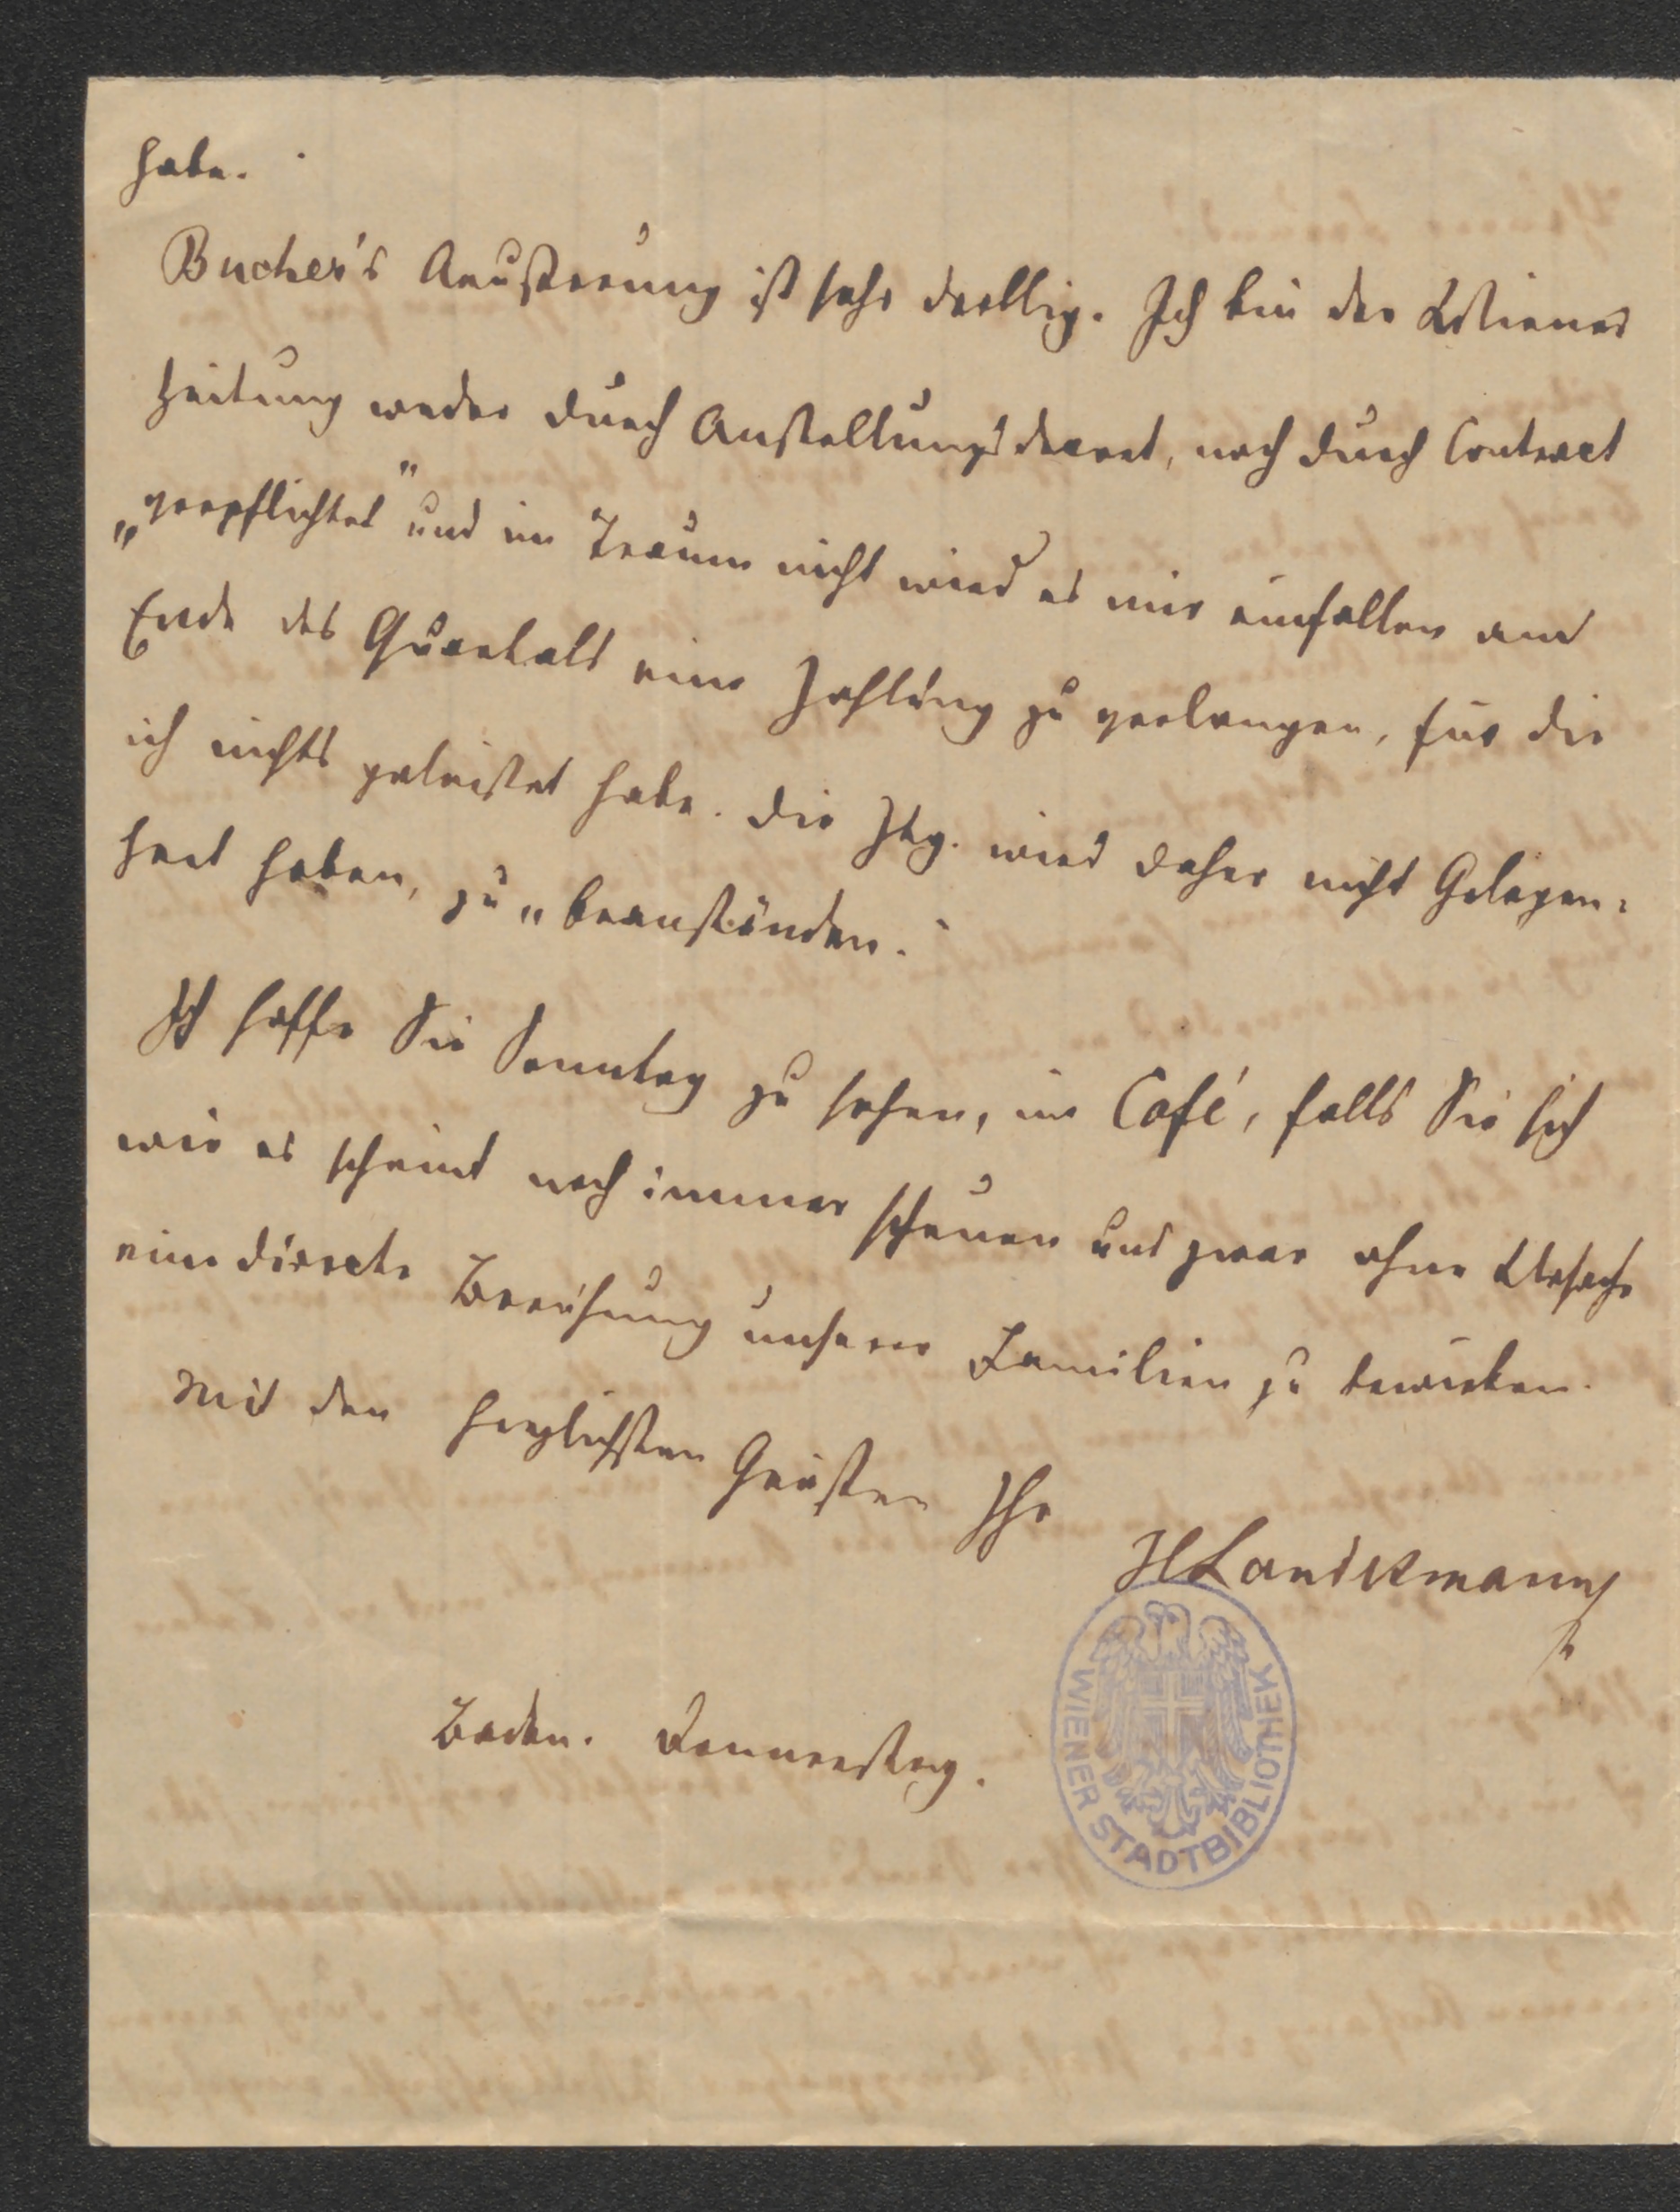 habe.
Bucher's Aeußerung ist sehr drollig. Ich bin der Wiener
Zeitung weder durch Anstellungsdecret, noch durch Contract
„verpflichtet" und im Traum nicht wird es mir einfallen am
Ende des Quartals eine Zahlung zu verlangen, für die
ich nichts geleistet habe. Die Ztg. wird daher nicht Gelegen-
heit haben, zu „beanständen."
Ich hoffe Sie Sonntag zu sehen, im Café, falls Sie sich
wie es scheint noch immer scheuen und zwar ohne Ursache
eine directe Berührung unserer Familien zu bewirken.
Mit den herzlichsten Grüßen Ihr
Baden. Donnerstag.
WIENER STADTBIBLIOTHEK